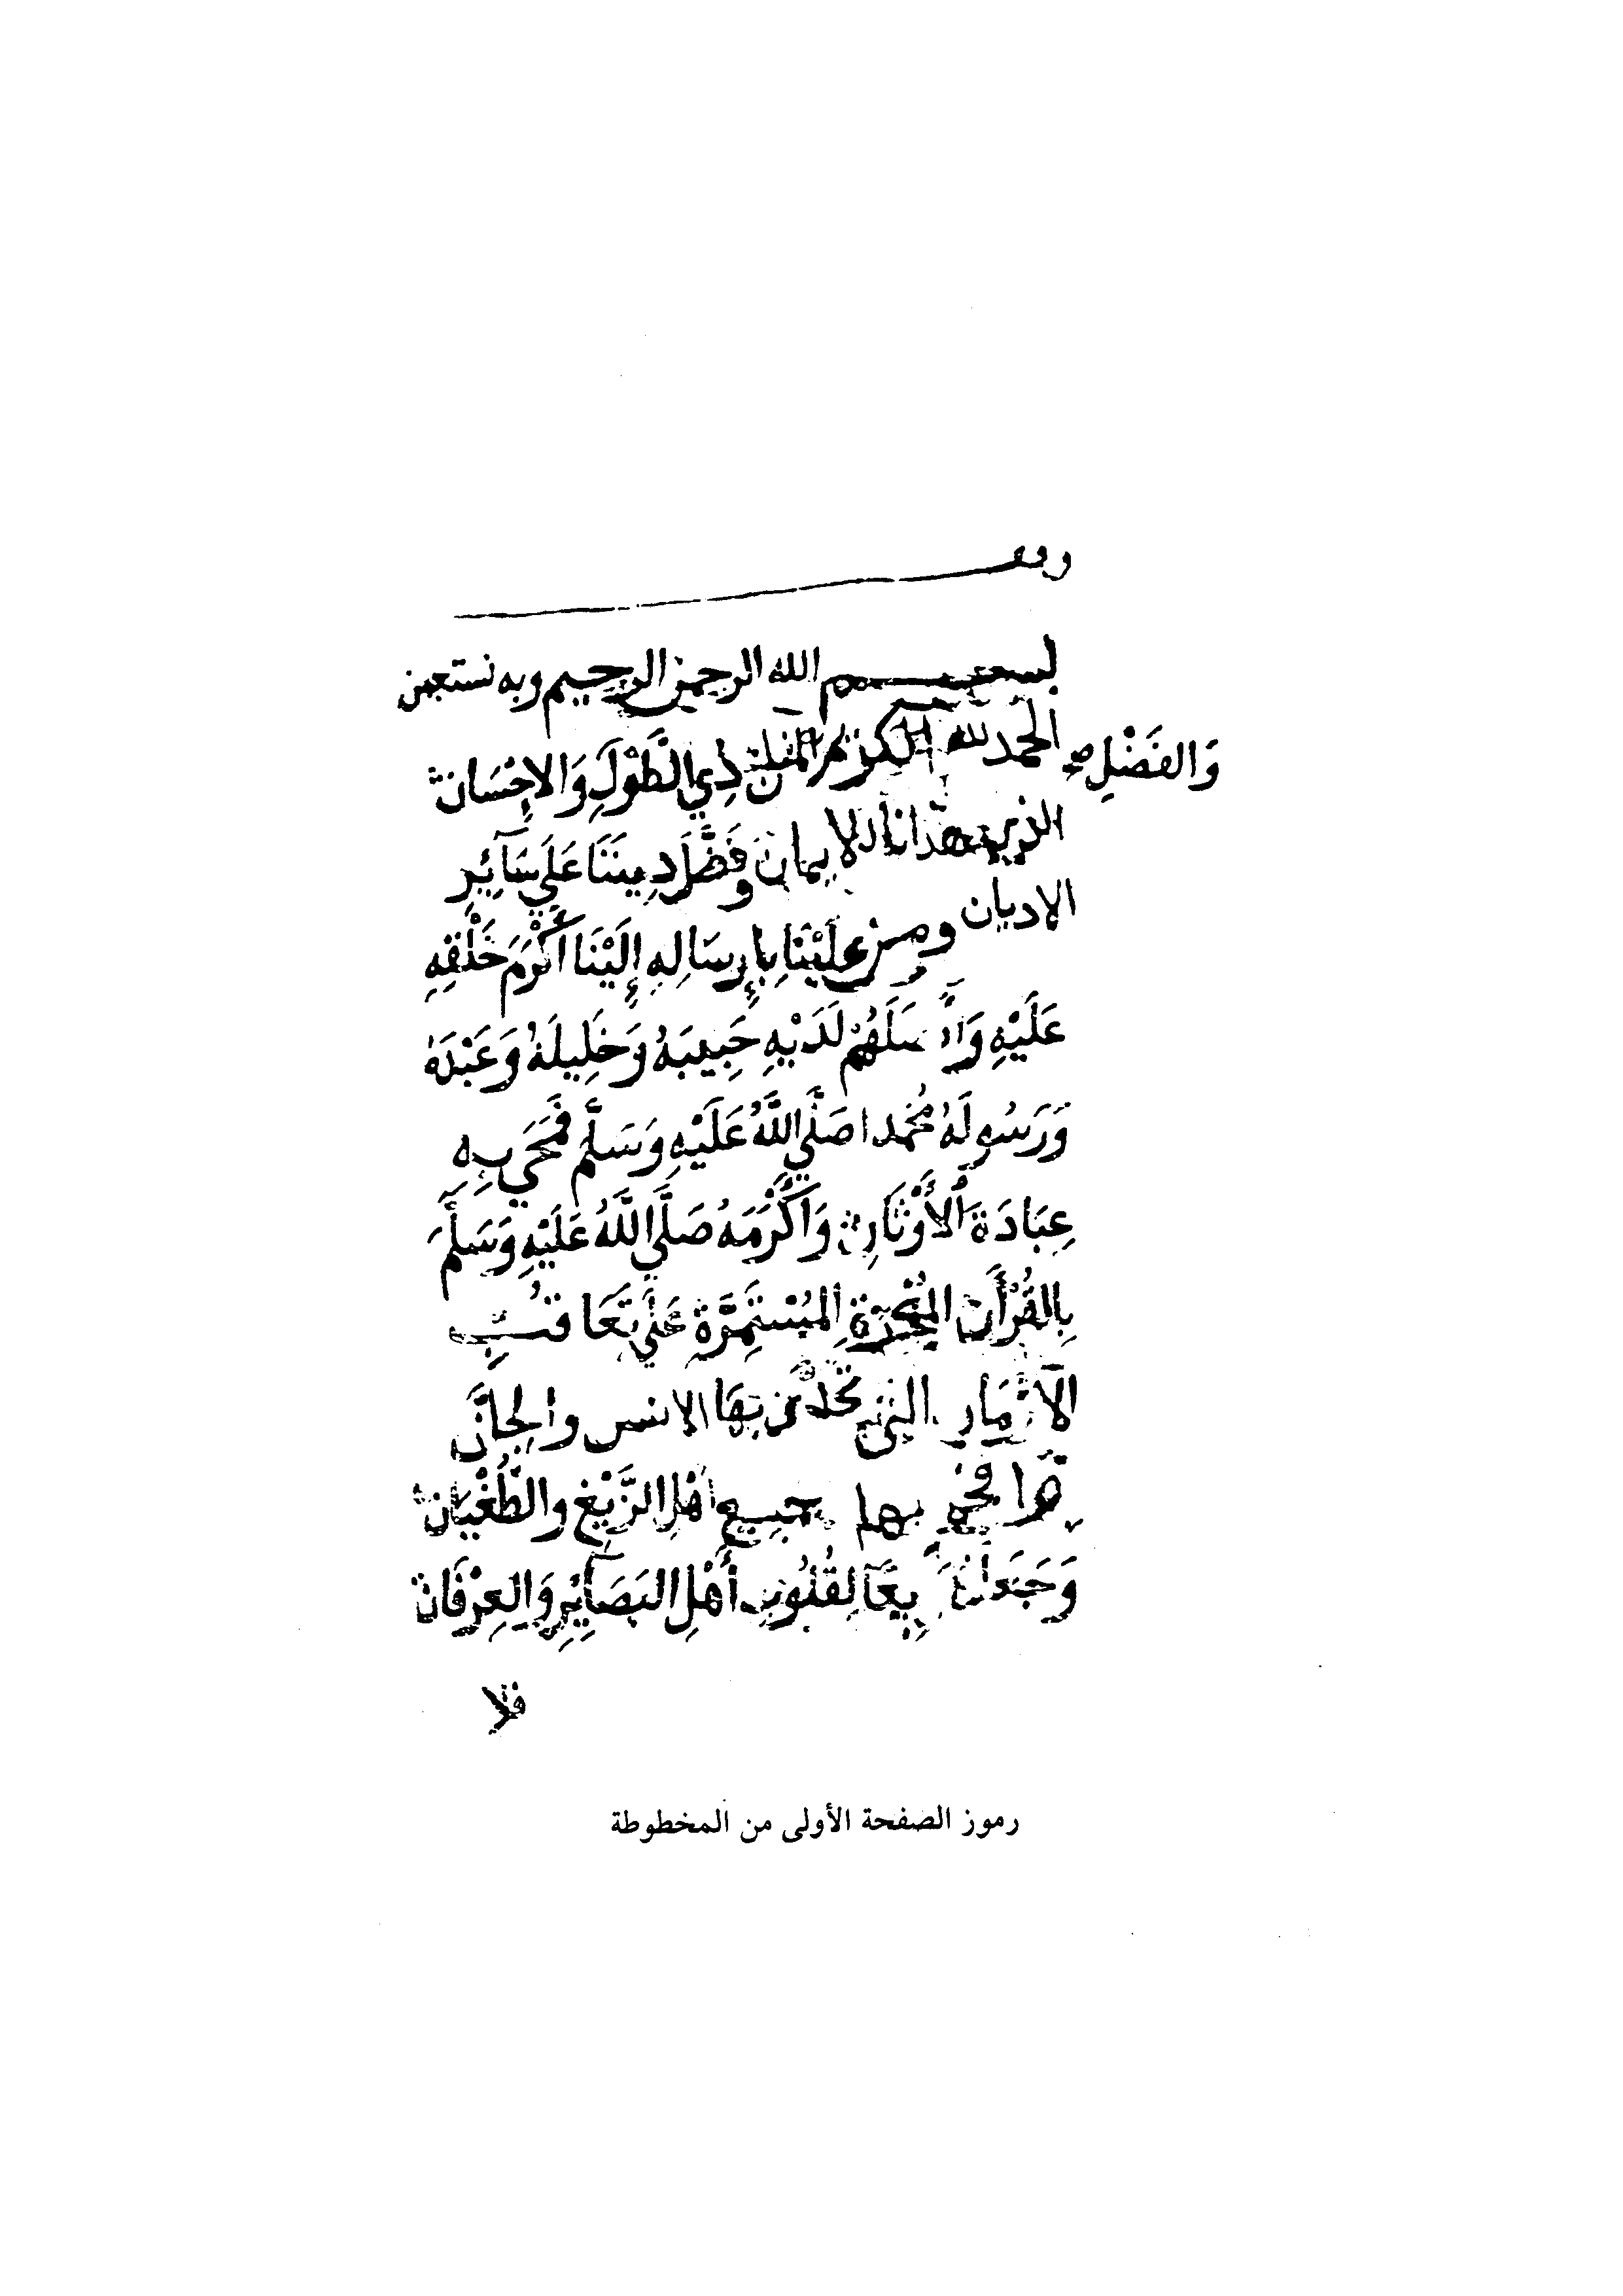 وقف
بسم الله الرحمن الرحيم وبه نستعين
الحمد لله الكريم المنان ذِي الطَّوْلِ وَالإِحْسَان
وَالفَضْلِ صح
الذي هدانا للايمان وَفَضَّلَ دِينَنَا عَلَي سَآئِرِ
الاديان ومن عَلَيْنَا بِإِرسَالِهِ إِلَيْنَا أَكْرَمَ خَلْقِهِ
عَلَيْهِ وَأَ سَلَهُمْ لَدَيْهِ حَبِيبَهُ وَخَلِيلَهُ وَعَبْدَهُ
وَرَسُولَهُ مُحَمدا صَلَّي اللَّهُ عَلَيْهِ وَسَلَّم فَمَحَي بِهِ
عِبَادَةَ الأَوْثَانِ وَأَكْرَمَهُ صَلَّي اللَّهُ عَلَيْهِ وَسَلَّمَ
بِالقُرْأَن المُعْجِزَةِ المُسْتَمِرَّةِ عَلَي تَعَاقُبِ
الأَزْمَان التي تَحَدَّى بِهَا الانس والجَانَّ
وَأَفحم بها جميع أهْلِ الزَّيْغِ والطُّغْيَان
وَجَعَلَهُ رَبِيعًا لِقُلُوبِ أَهْلِ البَصَآئِرِ وَالعِرْفَان
فلا
رموز الصفحة الأولى من المخطوطة